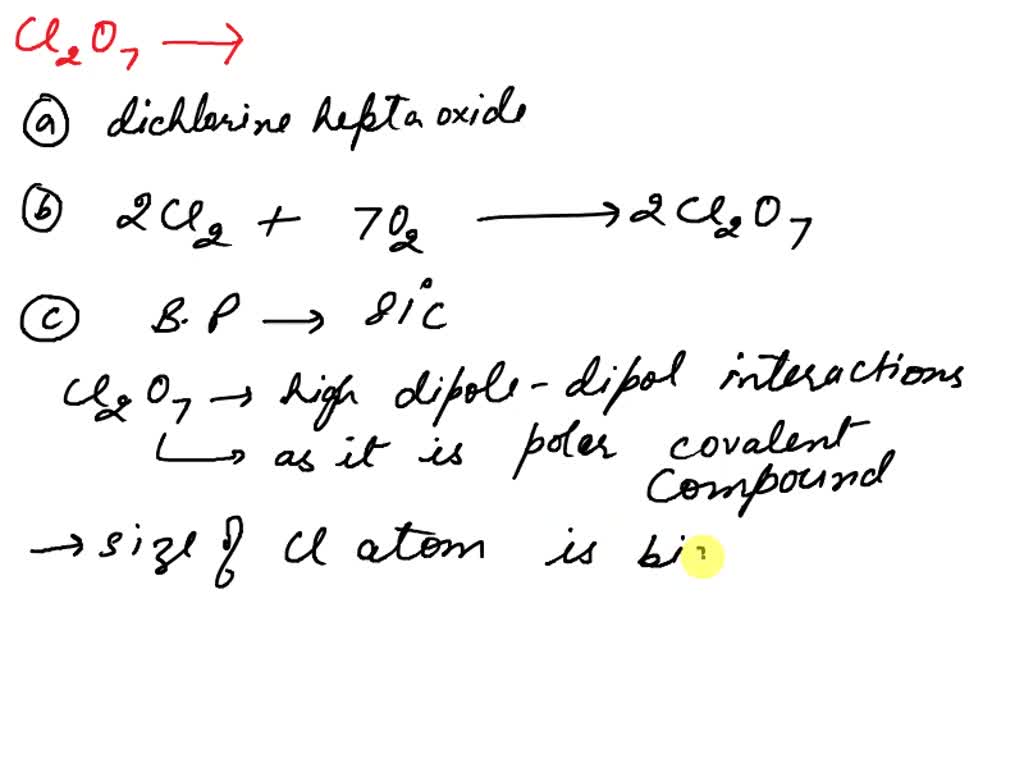 Cl₂O₇ →
ⓐ dichlorine heptaoxide
ⓑ 2Cl₂ + 7O₂ → 2Cl₂O₇
ⓒ B.P → 81°C
Cl₂O₇ → high dipole-dipol interactions
↳ as it is polar covalent
compound
→ size of Cl atom is bi